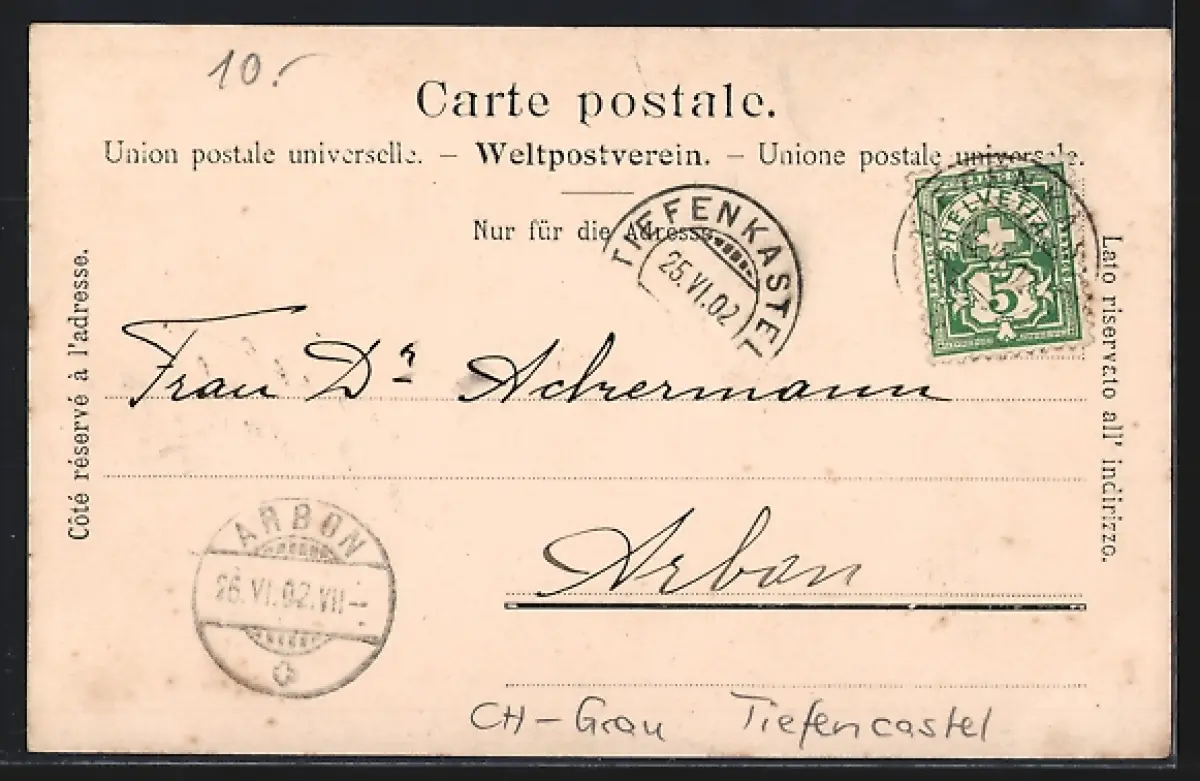 10.-
Carte postale.
Union postale universelle. – Weltpostverein. – Unione postale universale.
Nur für die Adresse
TIEFENKASTEL
25.VI.02
HELVETIA
5
Côté réservé à l'adresse.
Lato riservato all' indirizzo.
Frau Dr Ackermann
Arbon
ARBON
26.VI.02.VII
CH – Grau Tiefencastel